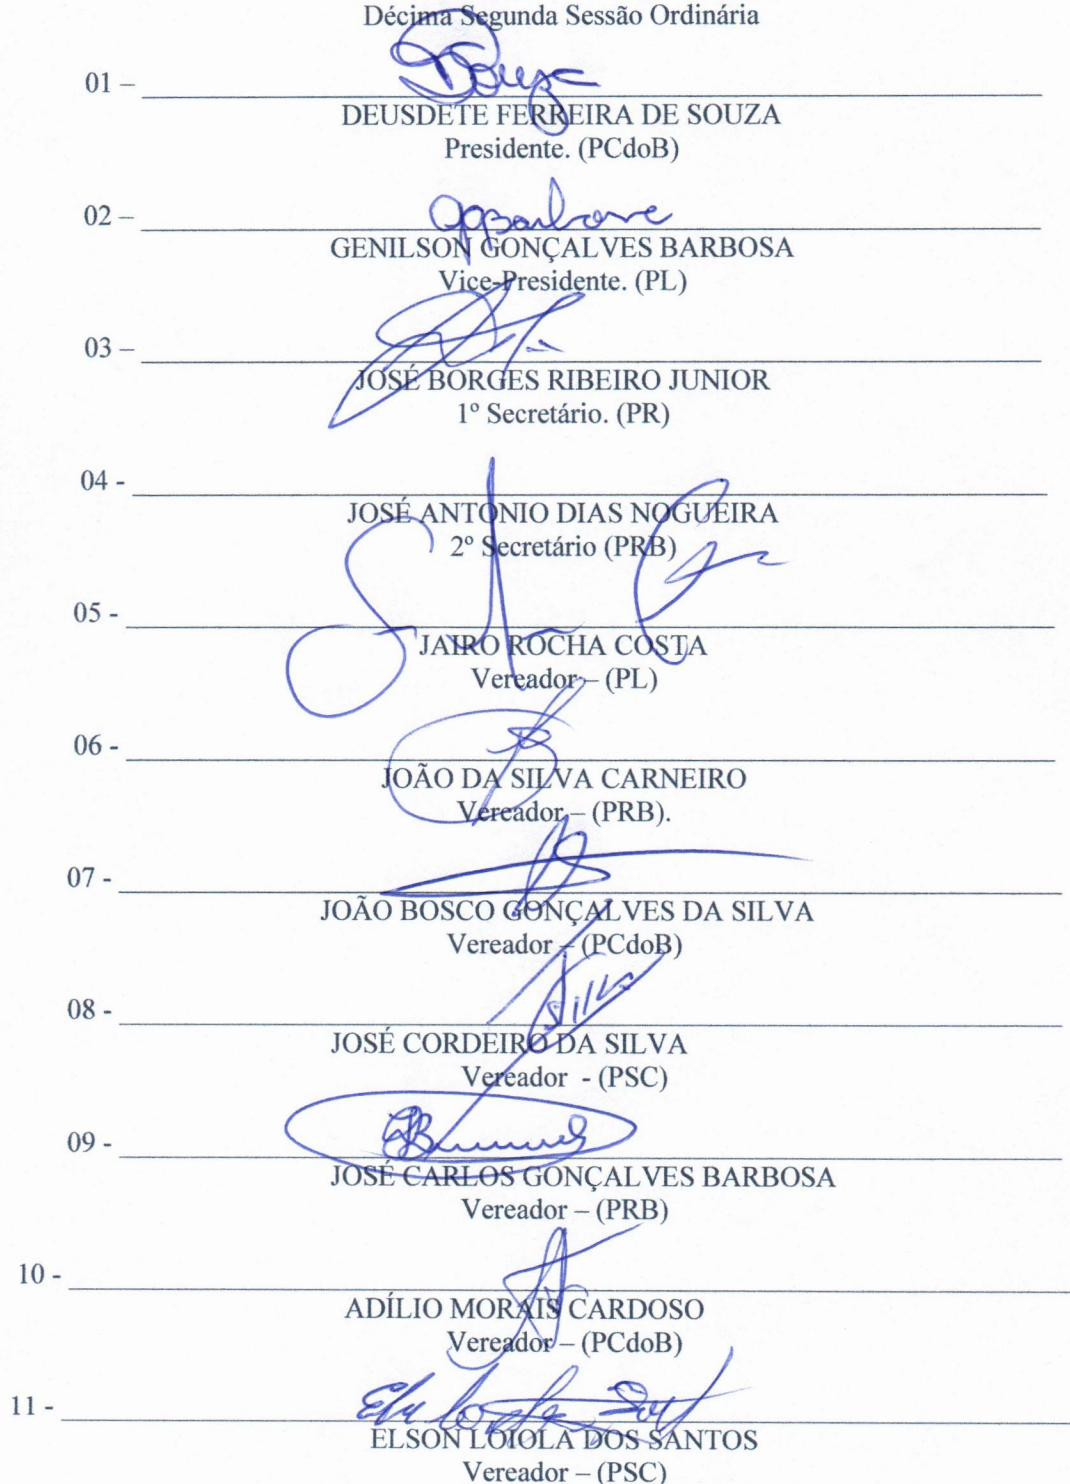 Décima Segunda Sessão Ordinária
01 –
DEUSDETE FERREIRA DE SOUZA
Presidente. (PCdoB)
02 –
GENILSON GONÇALVES BARBOSA
Vice-Presidente. (PL)
03 –
JOSÉ BORGES RIBEIRO JUNIOR
1º Secretário. (PR)
04 -
JOSÉ ANTONIO DIAS NOGUEIRA
2º Secretário (PRB)
05 -
JAIRO ROCHA COSTA
Vereador – (PL)
06 -
JOÃO DA SILVA CARNEIRO
Vereador – (PRB).
07 -
JOÃO BOSCO GONÇALVES DA SILVA
Vereador – (PCdoB)
08 - Silva
JOSÉ CORDEIRO DA SILVA
Vereador - (PSC)
09 -
JOSÉ CARLOS GONÇALVES BARBOSA
Vereador – (PRB)
10 -
ADÍLIO MORAIS CARDOSO
Vereador – (PCdoB)
11 -
ELSON LOIOLA DOS SANTOS
Vereador – (PSC)